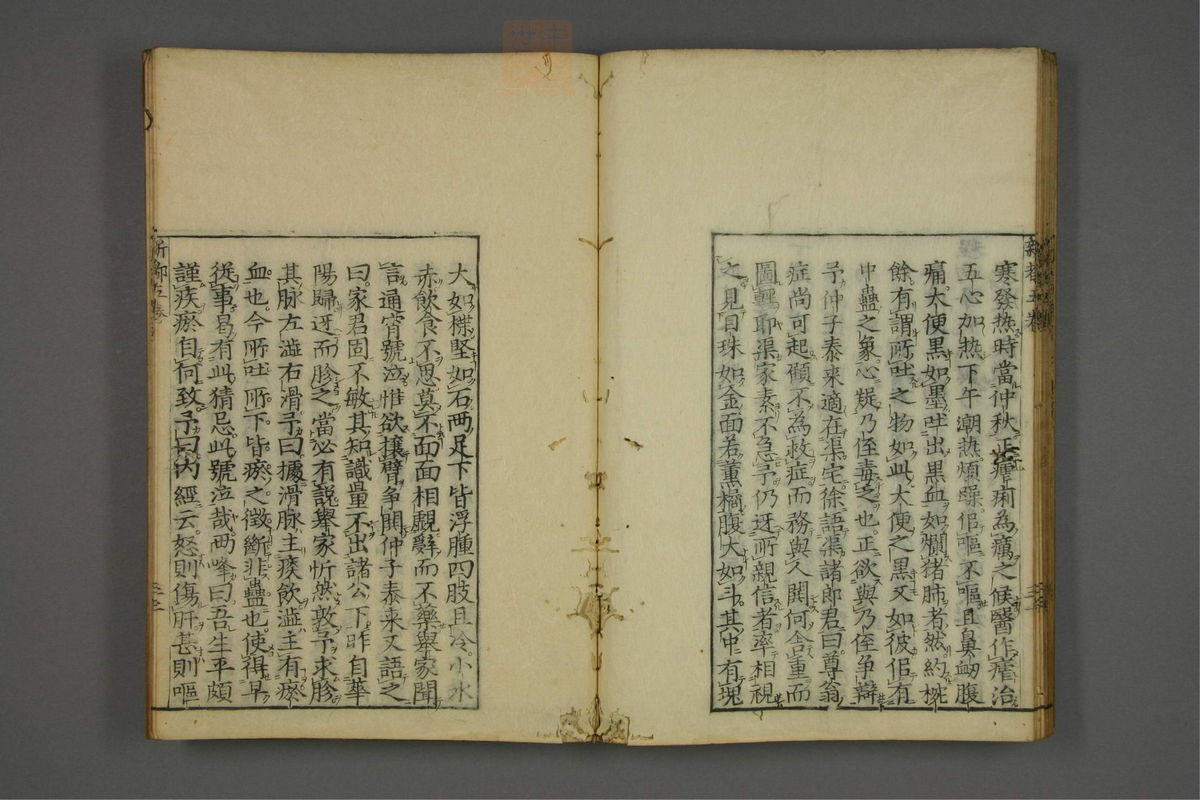 寒發热時當仲秋正瘧痢為癘之候醫作瘧治
五心加热下午潮热煩躁但嘔不嘔且鼻衂腹
痛大便黒如墨吐出黒血如爛猪肺者然約椀
餘有謂所吐之物如此大便之黒又如彼但有
中蠱之象心疑乃侄毒之也正欲與乃侄争辯
予仲子泰来適在渠宅徐語渠諸郎君曰尊翁
症尚可起顧不為救症而務與人閧何舎重而
圖輕耶渠家素不急予仍迓所親信者率相視
之見目珠如金面若薫橘腹大如斗其中有塊
大如楪堅如石两足下皆浮腫四肢且冷小水
赤飲食不思莫不面面相覷辭而不藥舉家聞
言通宵號泣惟欲攘臂争閧仲子泰来又語之
曰家君固不敏其知識量不出諸公下昨自華
陽歸迓而胗之當必有説舉家忻然敦予求胗
其脉左澁右滑予曰據滑脉主痰飲澁主有瘀
血也今所吐所下皆瘀之徴斷非蠱也使得早
従事曷有此猜忌此號泣哉两峰曰吾生平頗
謹疾瘀自何致予曰内經云怒則傷肝甚則嘔